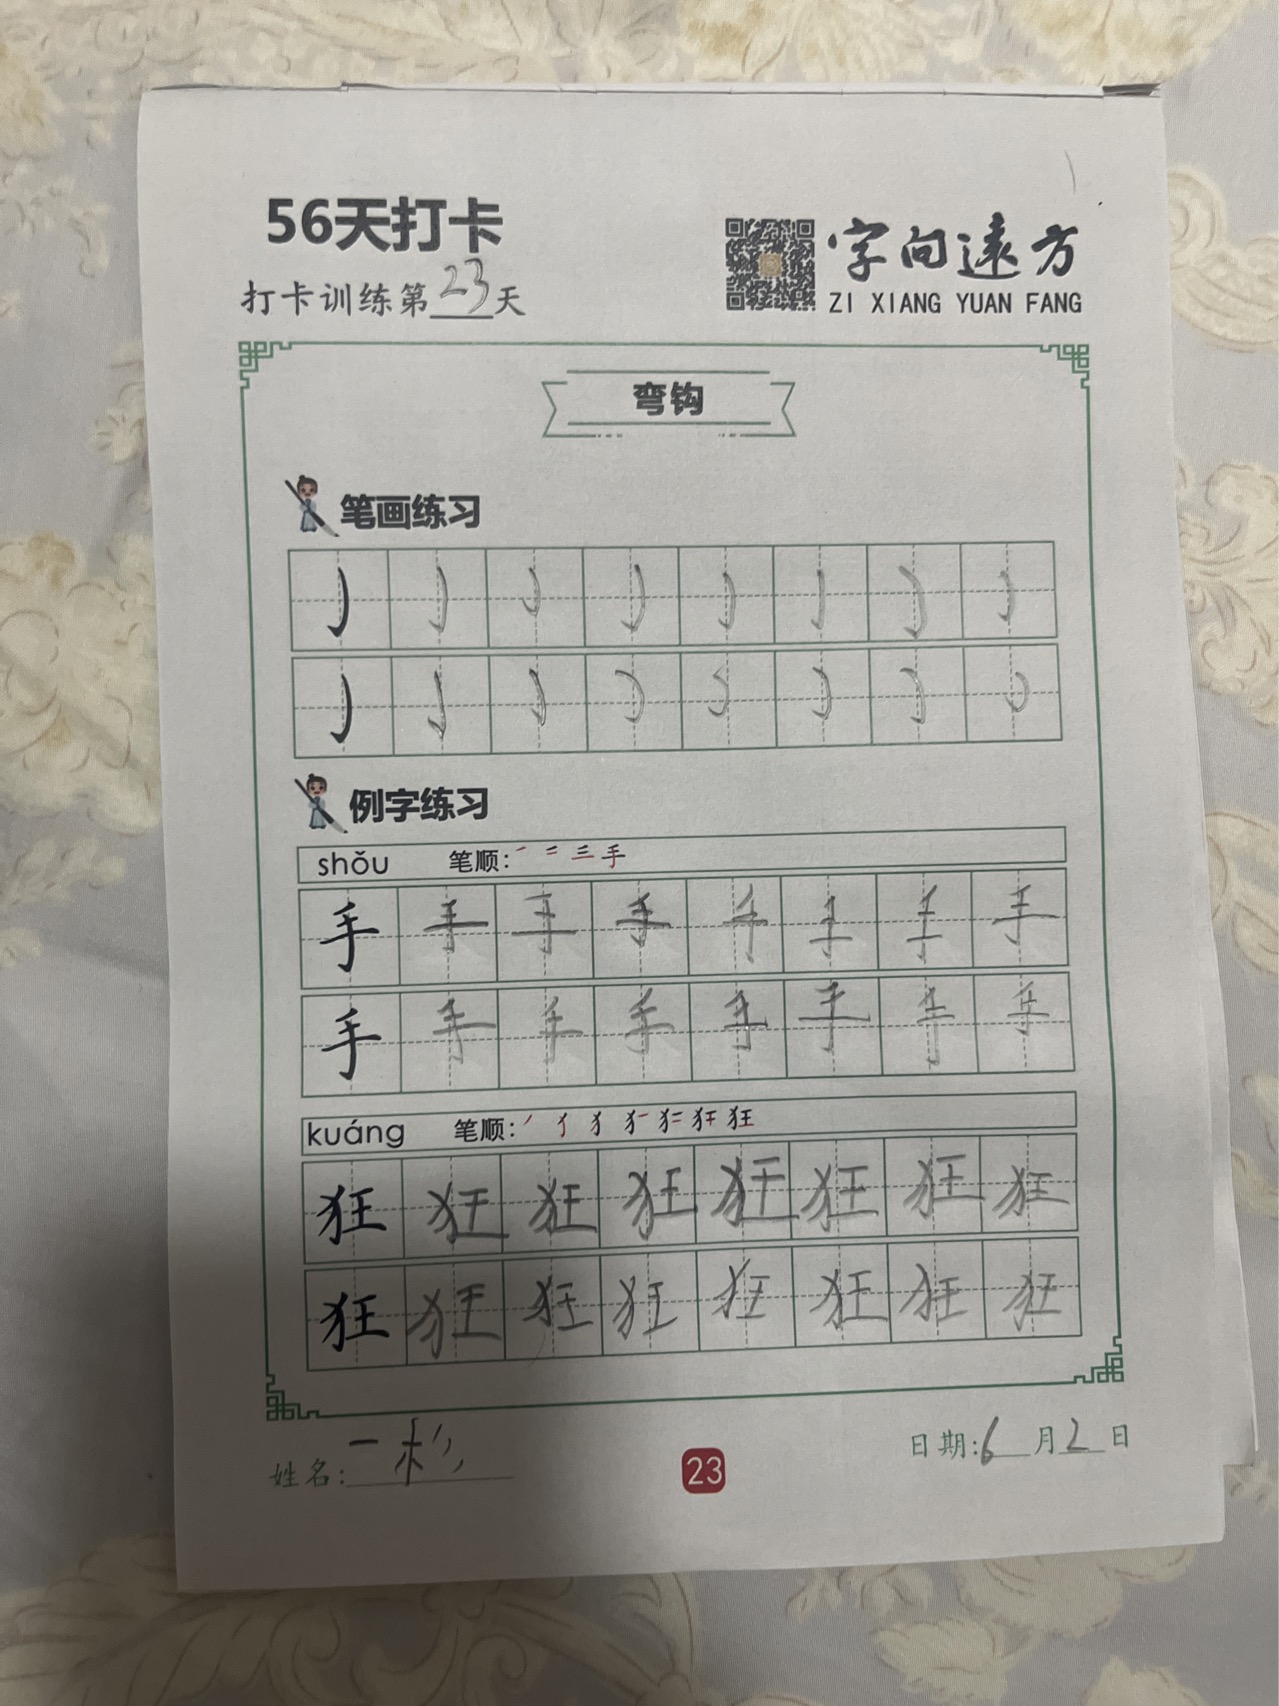 56天打卡
打卡训练第23天
字向远方
ZI XIANG YUAN FANG
弯钩
笔画练习
例字练习
shǒu 笔顺: 一 二 三 手
手 手 手 手 手 手 手 手
手 手 手 手 手 手 手 手
kuáng 笔顺: 狂
狂 狂 狂 狂 狂 狂 狂 狂
狂 狂 狂 狂 狂 狂 狂 狂
姓名: 一杉
23
日期: 6月2日